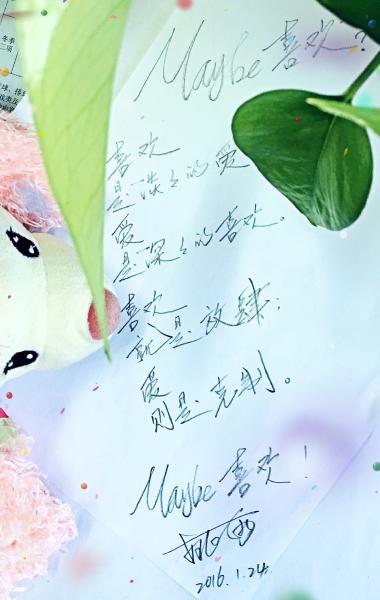 冬季
二项
Maybe 喜欢?
喜欢
是淡淡的爱
爱
是深深的喜欢。
喜欢
就是放肆;
爱
则是克制。
Maybe 喜欢!
2016.1.24.